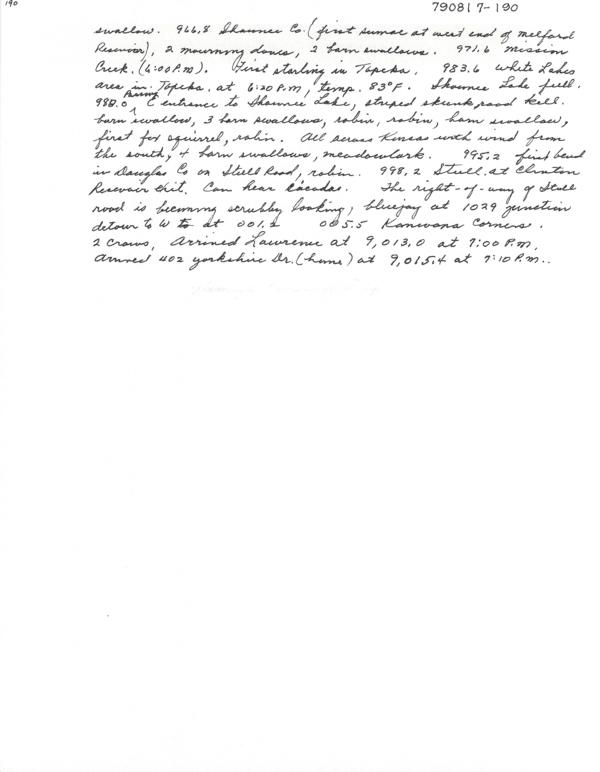 190
790817-190
swallow. 966.8 Shawnee Co. (first sumac at west end of Melford
Reservoir), 2 mourning doves, 2 barn swallows. 971.6 Mission
Creek. (6:00 P.M.). First starling in Topeka. 983.6 White Lakes
area in Topeka, at 6:20 P.M., temp. 83°F. Shawnee Lake full.
988.0 Passing entrance to Shawnee Lake, striped skunk, road kill.
barn swallow, 3 barn swallows, robin, robin, barn swallow,
first fox squirrel, robin. All across Kansas with wind from
the south, 4 barn swallows, meadowlark. 995.2 first bend
in Douglas Co on Stull Road, robin. 998.2 Stull at Clinton
Reservoir Exit. Can hear cicadas. The right-of-way of Stull
road is becoming scrubby looking, bluejay at 1029 junction
detour to W to at 001.2 005.5 Kanwana Corners.
2 crows, Arrived Lawrence at 9,013.0 at 7:00 P.M.
Arrived 402 Yorkshire Dr. (home) at 9,015.4 at 7:10 P.M..